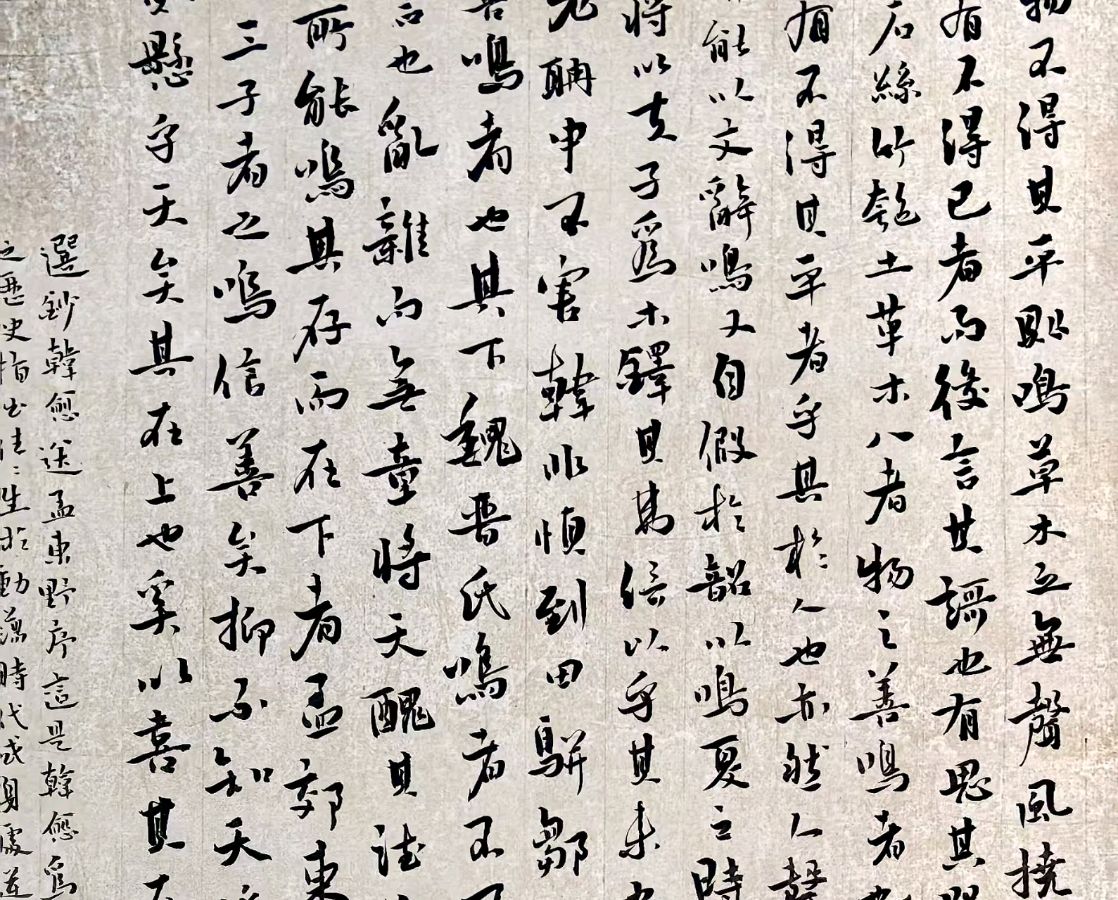 物不得其平則鳴草木之無聲風撓
有不得已者而後言其謌也有思其
石絲竹匏土革木八者物之善鳴者
有不得其平者乎其於人也亦然人聲
能以文辭鳴又自假於韶以鳴夏之時
將以夫子爲木鐸其弗信以乎其未
耼申不害韓非慎到田駢鄒
善鳴者也其下魏晋氏鳴者不
言也亂雜而無章將天醜其德
所能鳴其存而在下者孟郊東
三子者之鳴信善矣抑不知天
懸乎天矣其在上也奚以喜其
選鈔韓愈送孟東野序這是韓愈爲
之歷史指出往々生於動蕩時代或身處逆